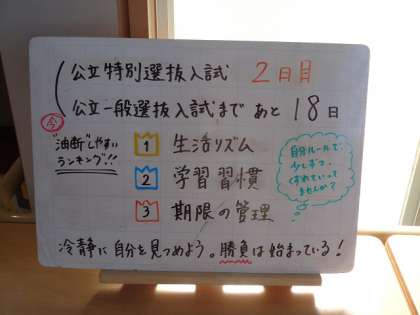 公立特別選抜入試 2日目
公立一般選抜入試まで あと 18日
今
"油断"しやすい
ランキング!!
1 生活リズム
2 学習習慣
3 期限の管理
自分ルールで
少しずつ、
くずれていって
ませんか?
冷静に自分を見つめよう。勝負は始まっている!